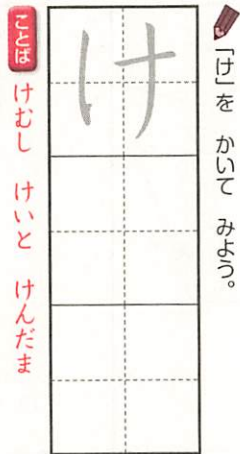 「け」を　かいて　みよう。
け
ことば
けむし　けいと　けんだま